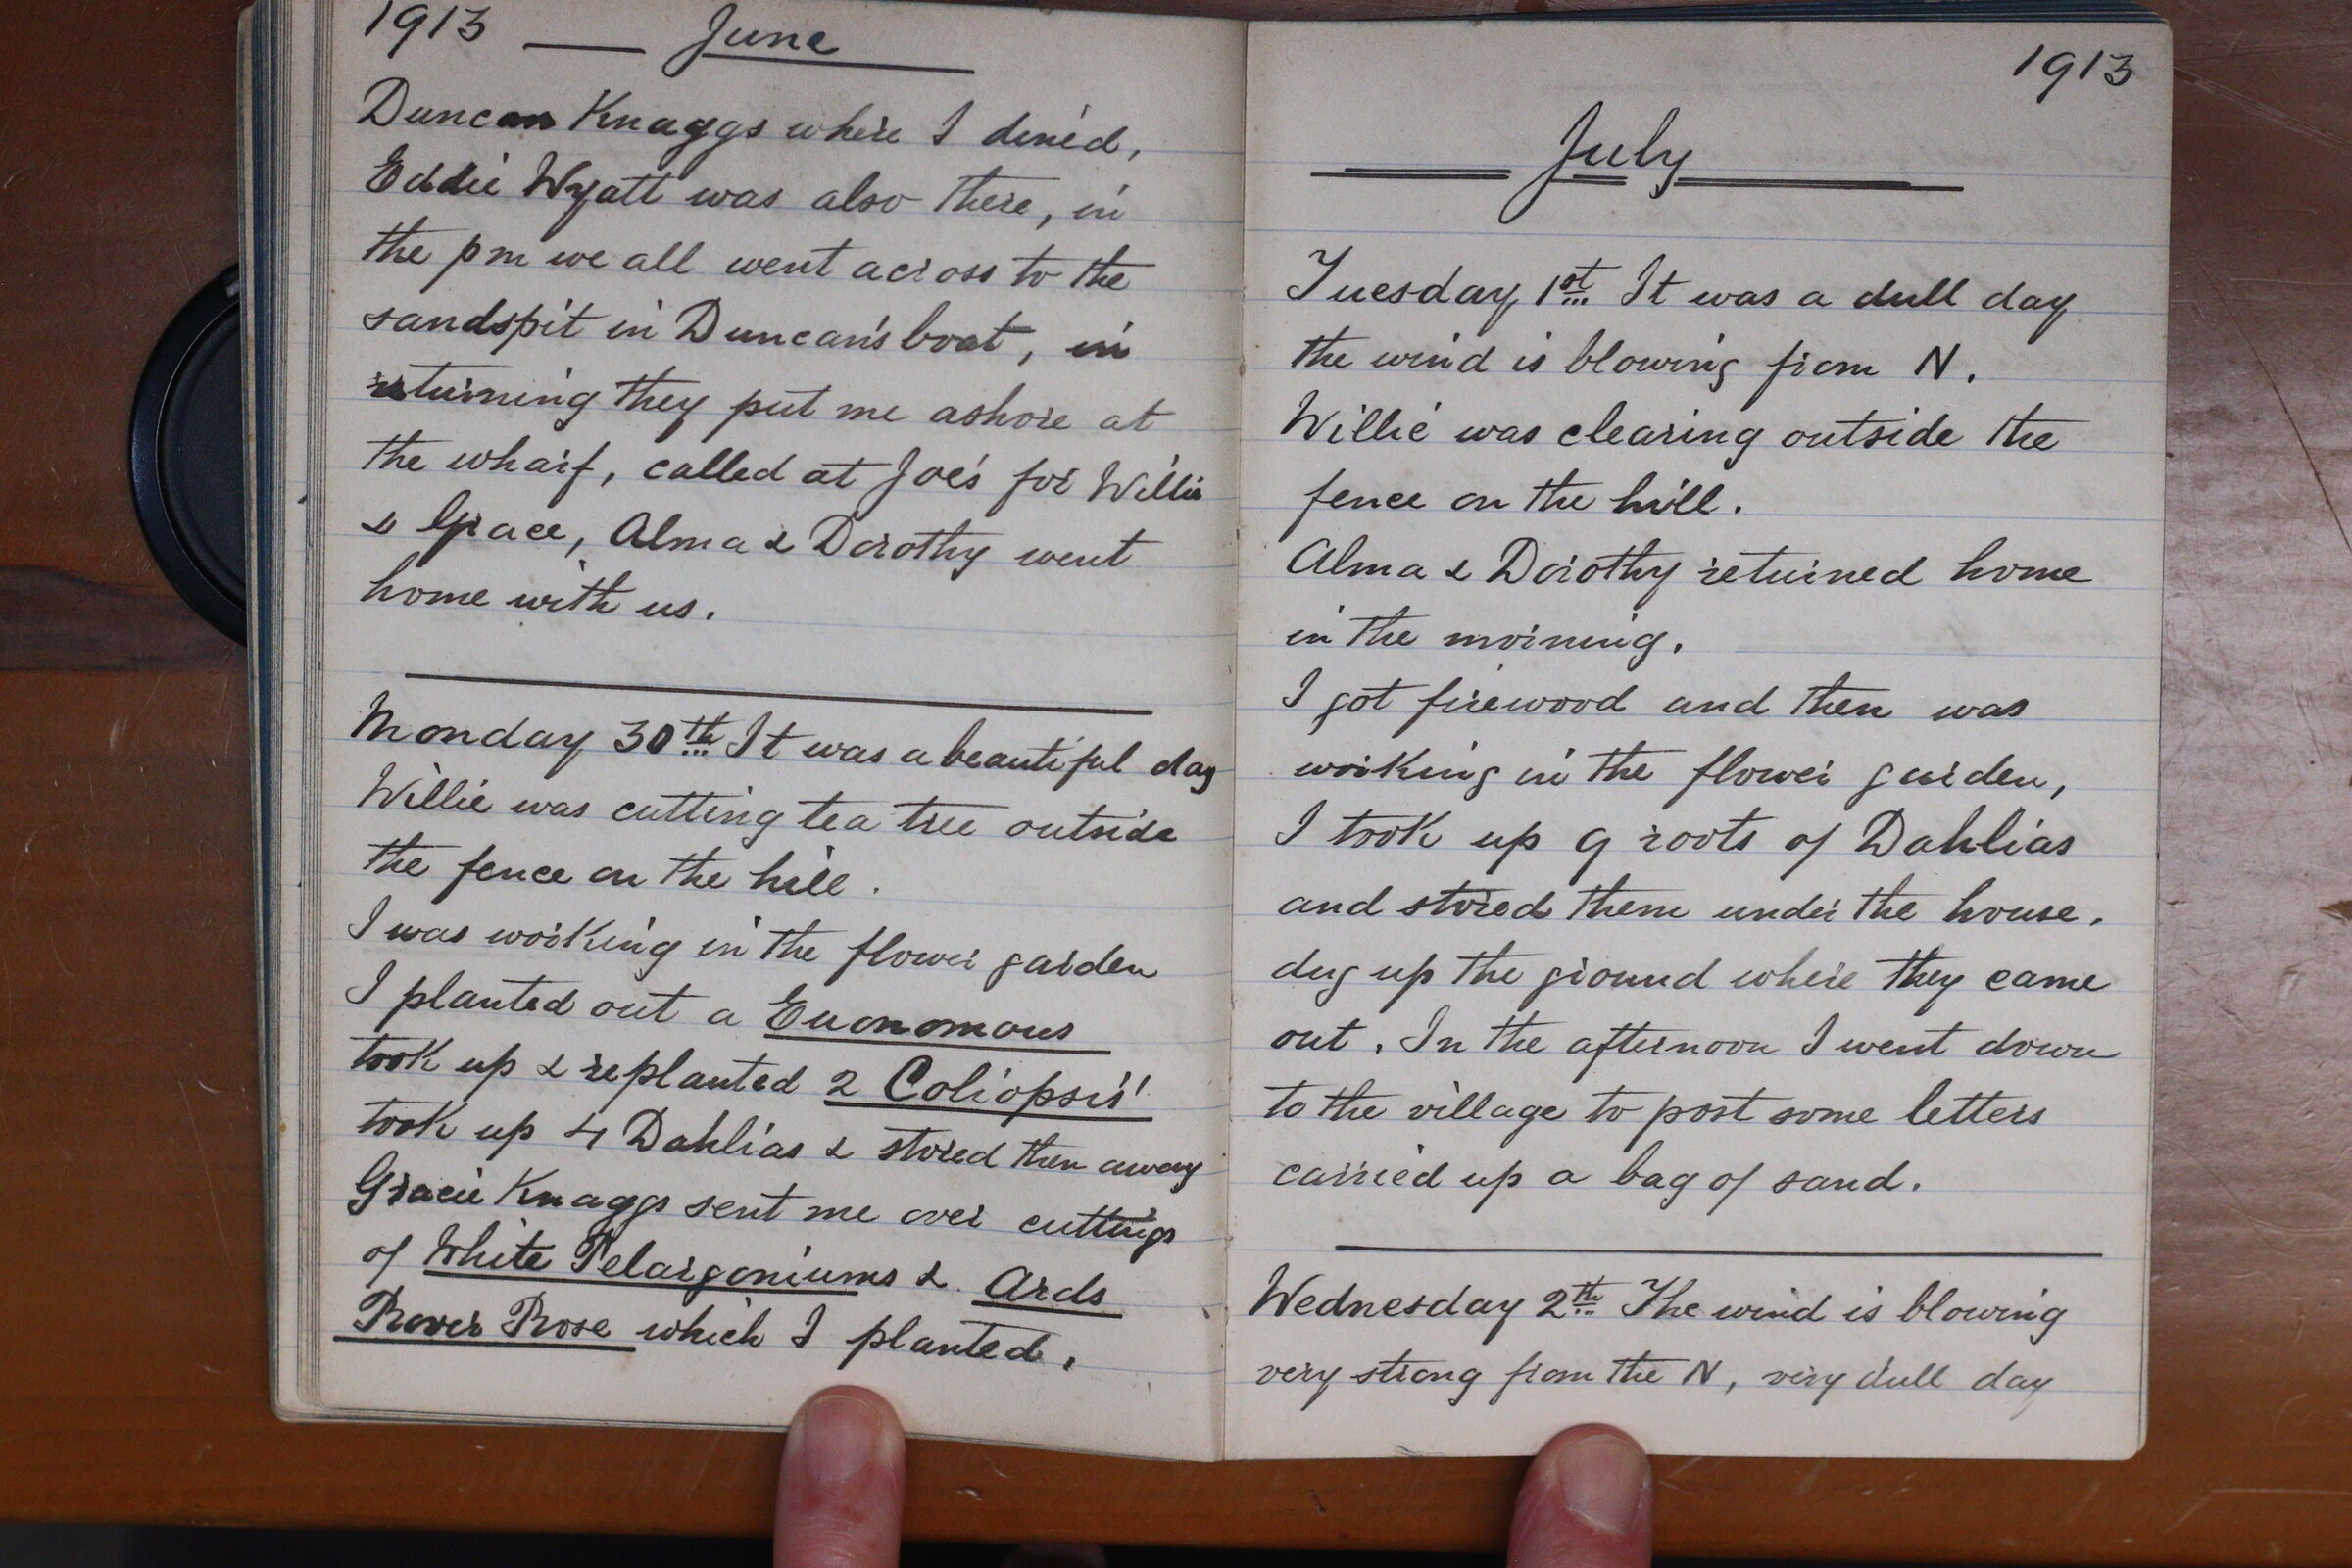 1913 — June
Duncan Knaggs where I dined,
Eddie Wyatt was also there, in
the pm we all went across to the
sandspit in Duncan's boat, in
returning they put me ashore at
the wharf, called at Joe's for Willie
& Grace, Alma & Dorothy went
home with us.
Monday 30th It was a beautiful day
Willie was cutting tea tree outside
the fence on the hill.
I was working in the flower garden
I planted out a Euonomous
took up & replanted 2 Coliopsis'
took up 4 Dahlias & stored then away
Gracie Knaggs sent me over cuttings
of White Pelargoniums & Ards
Rover Rose which I planted.
1913
July
Tuesday 1st It was a dull day
the wind is blowing from N.
Willie was clearing outside the
fence on the hill.
Alma & Dorothy returned home
in the morning.
I got firewood and then was
working in the flower garden,
I took up 9 roots of Dahlias
and stored them under the house.
dug up the ground where they came
out. In the afternoon I went down
to the village to post some letters
carried up a bag of sand.
Wednesday 2th The wind is blowing
very strong from the N, very dull day